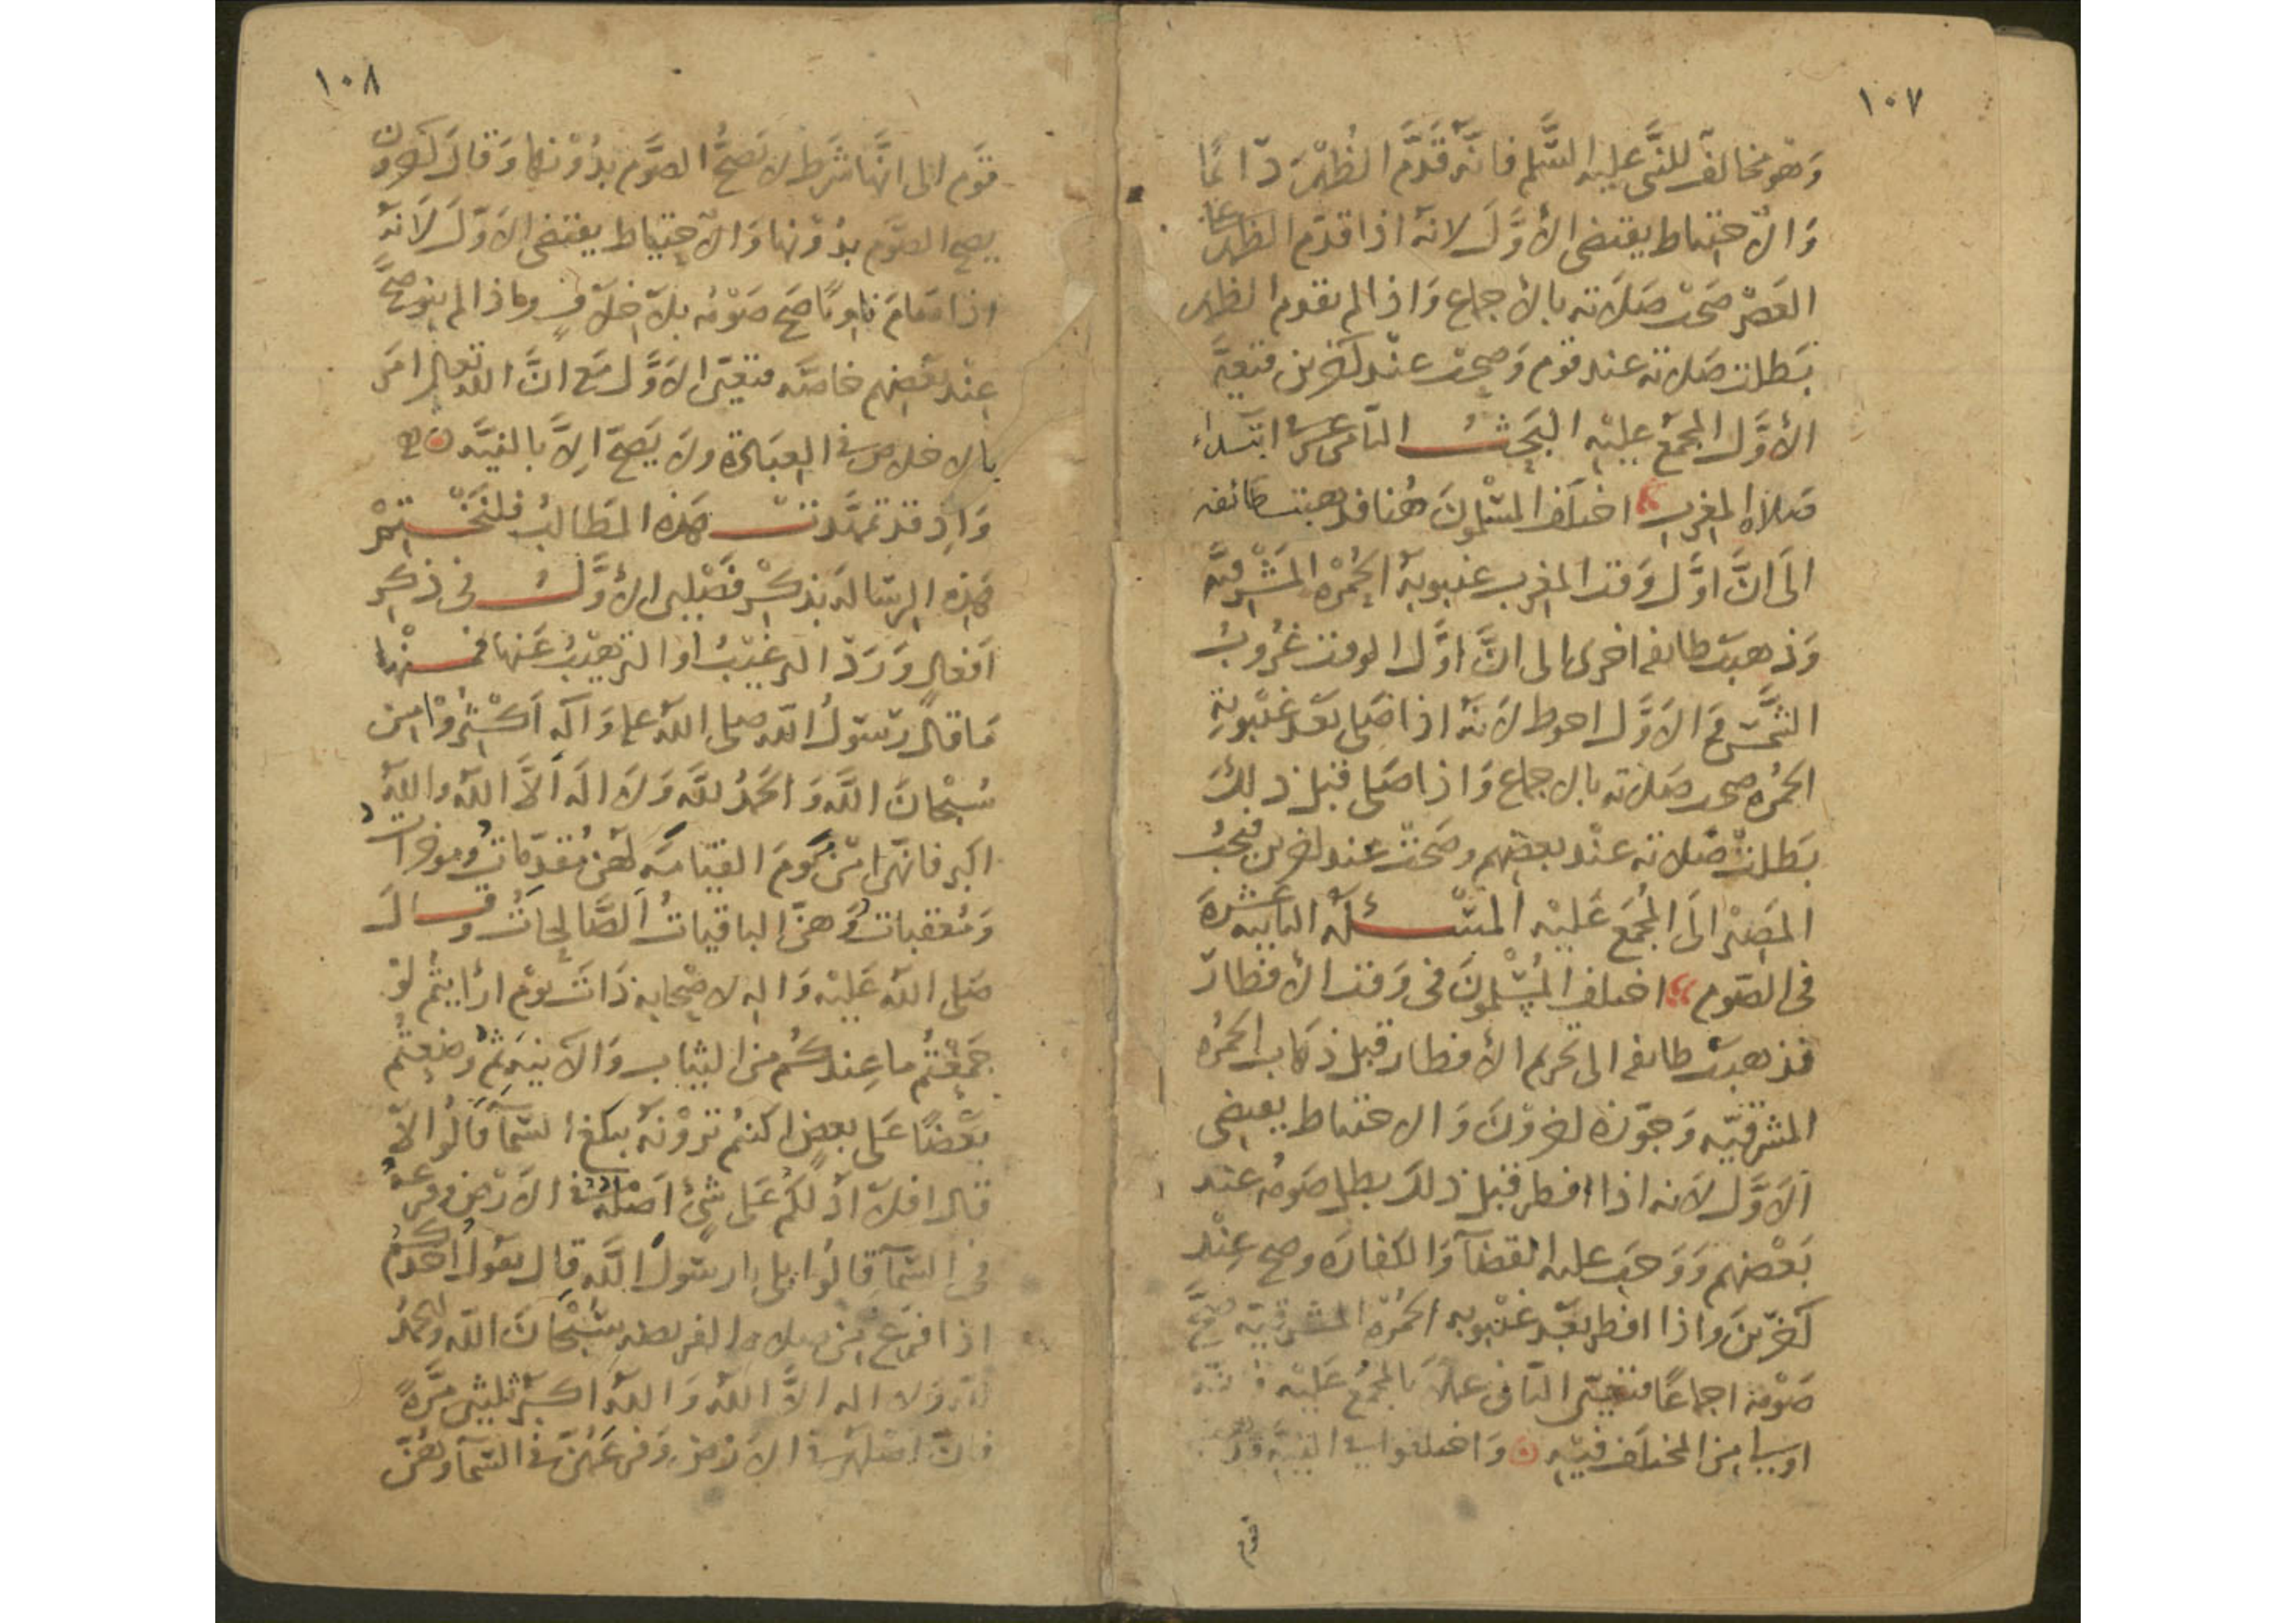 ١٠٧
وَهو مخالف للنبّى عليه السّلم فانّه قَدَّم الظُهْرَ دَائمًا
وَالاحتياط يقتضى الأوَّلَ لانّه اذا قدّم الظهر على
العَصْر صَحّت صَلَاته بالأجماع وَاذا لم يقدم الظهر
بَطلت صَلاته عند قوم وَصحت عنْد آخرين فتعيّن
الأوَّل المجمَع عليْهِ البَحَث الثامن عشر ابتداء
صَلاه المغرب اختلف المسْلمونَ هُنا فذهبت طائفه
الَى انَّ اوَّل وَقت المغرب غيبوبة الحُمْرَه المَشْرِقيَّه
وَذهبَت طائفه اخرى الى انَّ اوَّل الوقت غُروبُ
الشَّمس وَ الاَوَّل احوط لاَنّه اذا صَلى بَعْد غيْبوبةِ
الحُمره صحت صَلاته بالاجماع وَاذا صَلى قبل ذلِكَ
بَطلتْ صَلاته عنْد بعضِهم وصَحتْ عند اخرين فيجبُ
المَصِيْر الَى المُجْمَع عَليْه المَسْئَلَه الثانيه عَشرَة
فى الصّوم اختلف المُسْلمونَ فى وَقت الأفطار
فذهبَت طائفه الى تحريم الأفطار قبل ذهَاب الحُمْره
المشرقيّه وَجوّزه اخروْنَ وَالاحتياط يقتضى
اَلاَوَّل لاَنه اذا افطر قبل ذلكَ بطل صَومُه عِند
بَعْضهم وَوَجَبَ عليه القضآ وَالكفارَه وصح عِنْد
آخَرِيْنَ واذا افطر بَعْد غيْبوبه الحُمْرَة المشرقيّه صَحَّ
صَوْمه اجماعًا فتعيّن الثانى عملاَ بالمجْمَع عَليْه
اوييا مِن المختلَف فيْهِ وَاختلفوا فى النيّة
١٠٨
قوَم الى انَّها شَرط لا يَصحُّ الصَوَّم بدُوْنها وَقالَ آخرون
يصح الصَوّم بدُوْنها وَالاحتياط يقتضى الاَوّلَ لاَنهَ
اذا صَامَ نَاويًا صَح صَوْمُه بلاَ خلاَفٍ واذا لم ينو صحَّ
عِنْد بَعْضِهم خاصّه فتعيّن الاَوَّل مَع انَّ اللّه تعالى امَرَ
بالاخلاص فى العِبَادة ولاَ يَصحّ اِلاَّ بالنيَّه
وَاِذ قد تمهَّدتْ هَذه المَطالبُ فلنَخْتِمْ
هَذِه الرِسَالَه بذكْر فَصْلين الأوَّلُ فى ذِكر
اَفعالٍ وَرَدَ الترغيْبُ او الترهيْبُ عَنها فَمنْها
مَا قالَ رسُولُ اللّه صلى اللّه عليه وَآلِه اَكثرُوْا مِن
سُبْحانَ اللّه وَالحَمدُ للّه وَلاَ اله الاَّ اللّه واللّه
اكبر فانّهنَّ ياتيْن يَومَ القيَامَه لَهنَّ مُقدّمَاتٌ ومؤخراتٌ
وَمُعَقباتٌ وَهنَّ الباقياتُ الصَّالِحَاتُ وقالَ
صَلى اللّه عَليْه وَاله لاصْحابِه ذَاتَ يَوْم ارَاَيْتُم لوْ
جَمعْتُم ما عِندكُم مِن الثيابِ وَالآنيَه ثُمَّ وضعْتُم
بَعْضًا عَلى بعضٍ اكنتُم تَرَوْنَه يبلغ السّمآ قَالُوا لاَ
قالَ افلاَ ادُلكُم عَلى شئٍ اَصْلهُ فى الاَرْض وَفرعهُ
فى السّمآ قالُوا بلى يا رسُولَ اللّه قالَ يقولُ احدُكُم
اذا فرَغ مِن صلاه الفريضه سُبْحَانَ اللّه والحَمدُ
للّه ولا اله الاَّ اللّه وَاللّه اكبَر ثلثين مَرَّةً
فانّ اصْلهنّ فى الاَرْض وَفرعَهُنّ فى السّمآ وَهُنّ